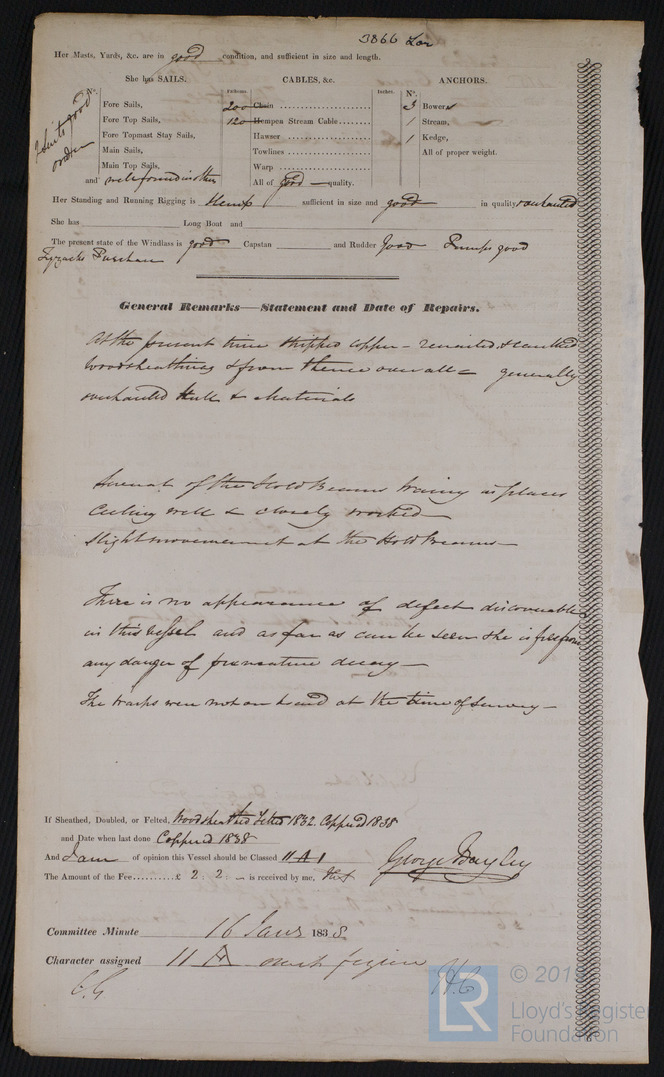 3866 Lon
Her Masts, Yards, &c. are in good condition, and sufficient in size and length.
She has SAILS. CABLES, &c. ANCHORS.
N°. Fathoms. Inches. N°.
Fore Sails, 200 Chain 3 Bowers
Fore Top Sails, 120 Hempen Stream Cable 1 Stream,
Fore Topmast Stay Sails, Hawser 1 Kedge,
Main Sails, Towlines All of proper weight.
Main Top Sails, Warp
and well found in others All of good quality.
good
order
Her Standing and Running Rigging is Hemp sufficient in size and good in quality overhauled
She has Long Boat and
The present state of the Windlass is good Capstan and Rudder Good Pumps good
Purchase
General Remarks—Statement and Date of Repairs.
At the present time stripped copper - & caulked
woodsheathing & from thence over all = generally
overhauled Hull & Materials
Several of the Hold Beams in places
Ceiling well & closely worked
Slight movement at the Hold Beams
There is no appearance of defect discoverable
in this vessel and as far as can be seen she is free from
any danger of premature decay
The were not on board at the time of Survey
If Sheathed, Doubled, or Felted, Woodsheathed Felted 1832. Coppered 1838
and Date when last done Coppered 1838
And I am of opinion this Vessel should be Classed 11 A 1
The Amount of the Fee £ 2 2 - is received by me,
George Bayley
Committee Minute 16 Jany 1838
Character assigned 11 A
C.G H.C
© 201
LR
Lloyd's Register
Foundation